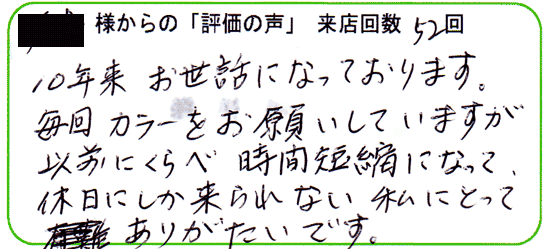 様からの「評価の声」 来店回数 52回
10年来 お世話になっております。
毎回 カラーをお願いしていますが
以前にくらべ 時間短縮になって、
休日にしか来られない 私にとって
ありがたいです。